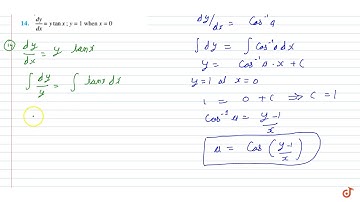 14. dy/dx = y tan x ; y = 1 when x = 0
(14) dy/dx = y tanx
∫ dy/y = ∫ tanx dx
dy/dx = Cos⁻¹ a
∫ dy = ∫ Cos⁻¹ a dx
y = Cos⁻¹ a · x + C
y = 1 at x = 0
1 = 0 + C ⇒ C = 1
Cos⁻¹ a = y-1/x
a = Cos (y-1/x)